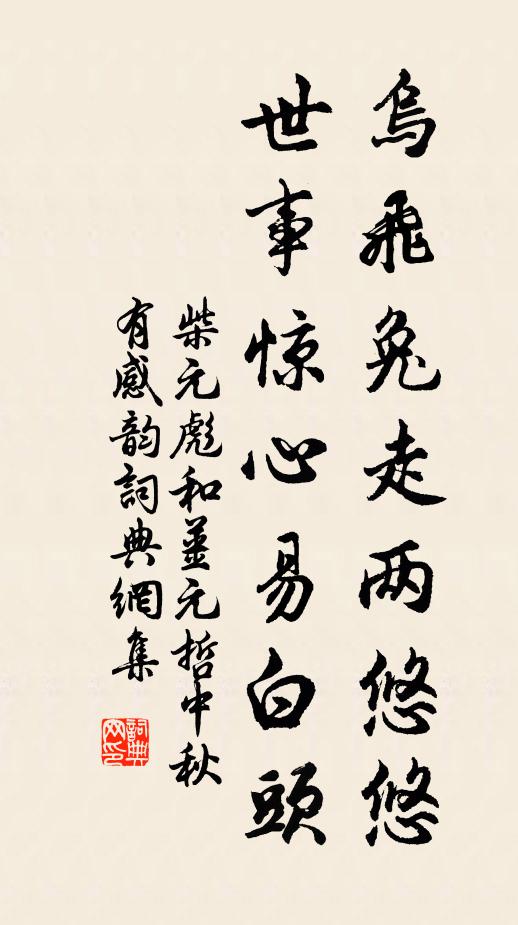 烏飛兔走两悠悠
世事惊心易白頭
柴元彪和姜元哲中秋
有感韵詞典網集
詞典网印